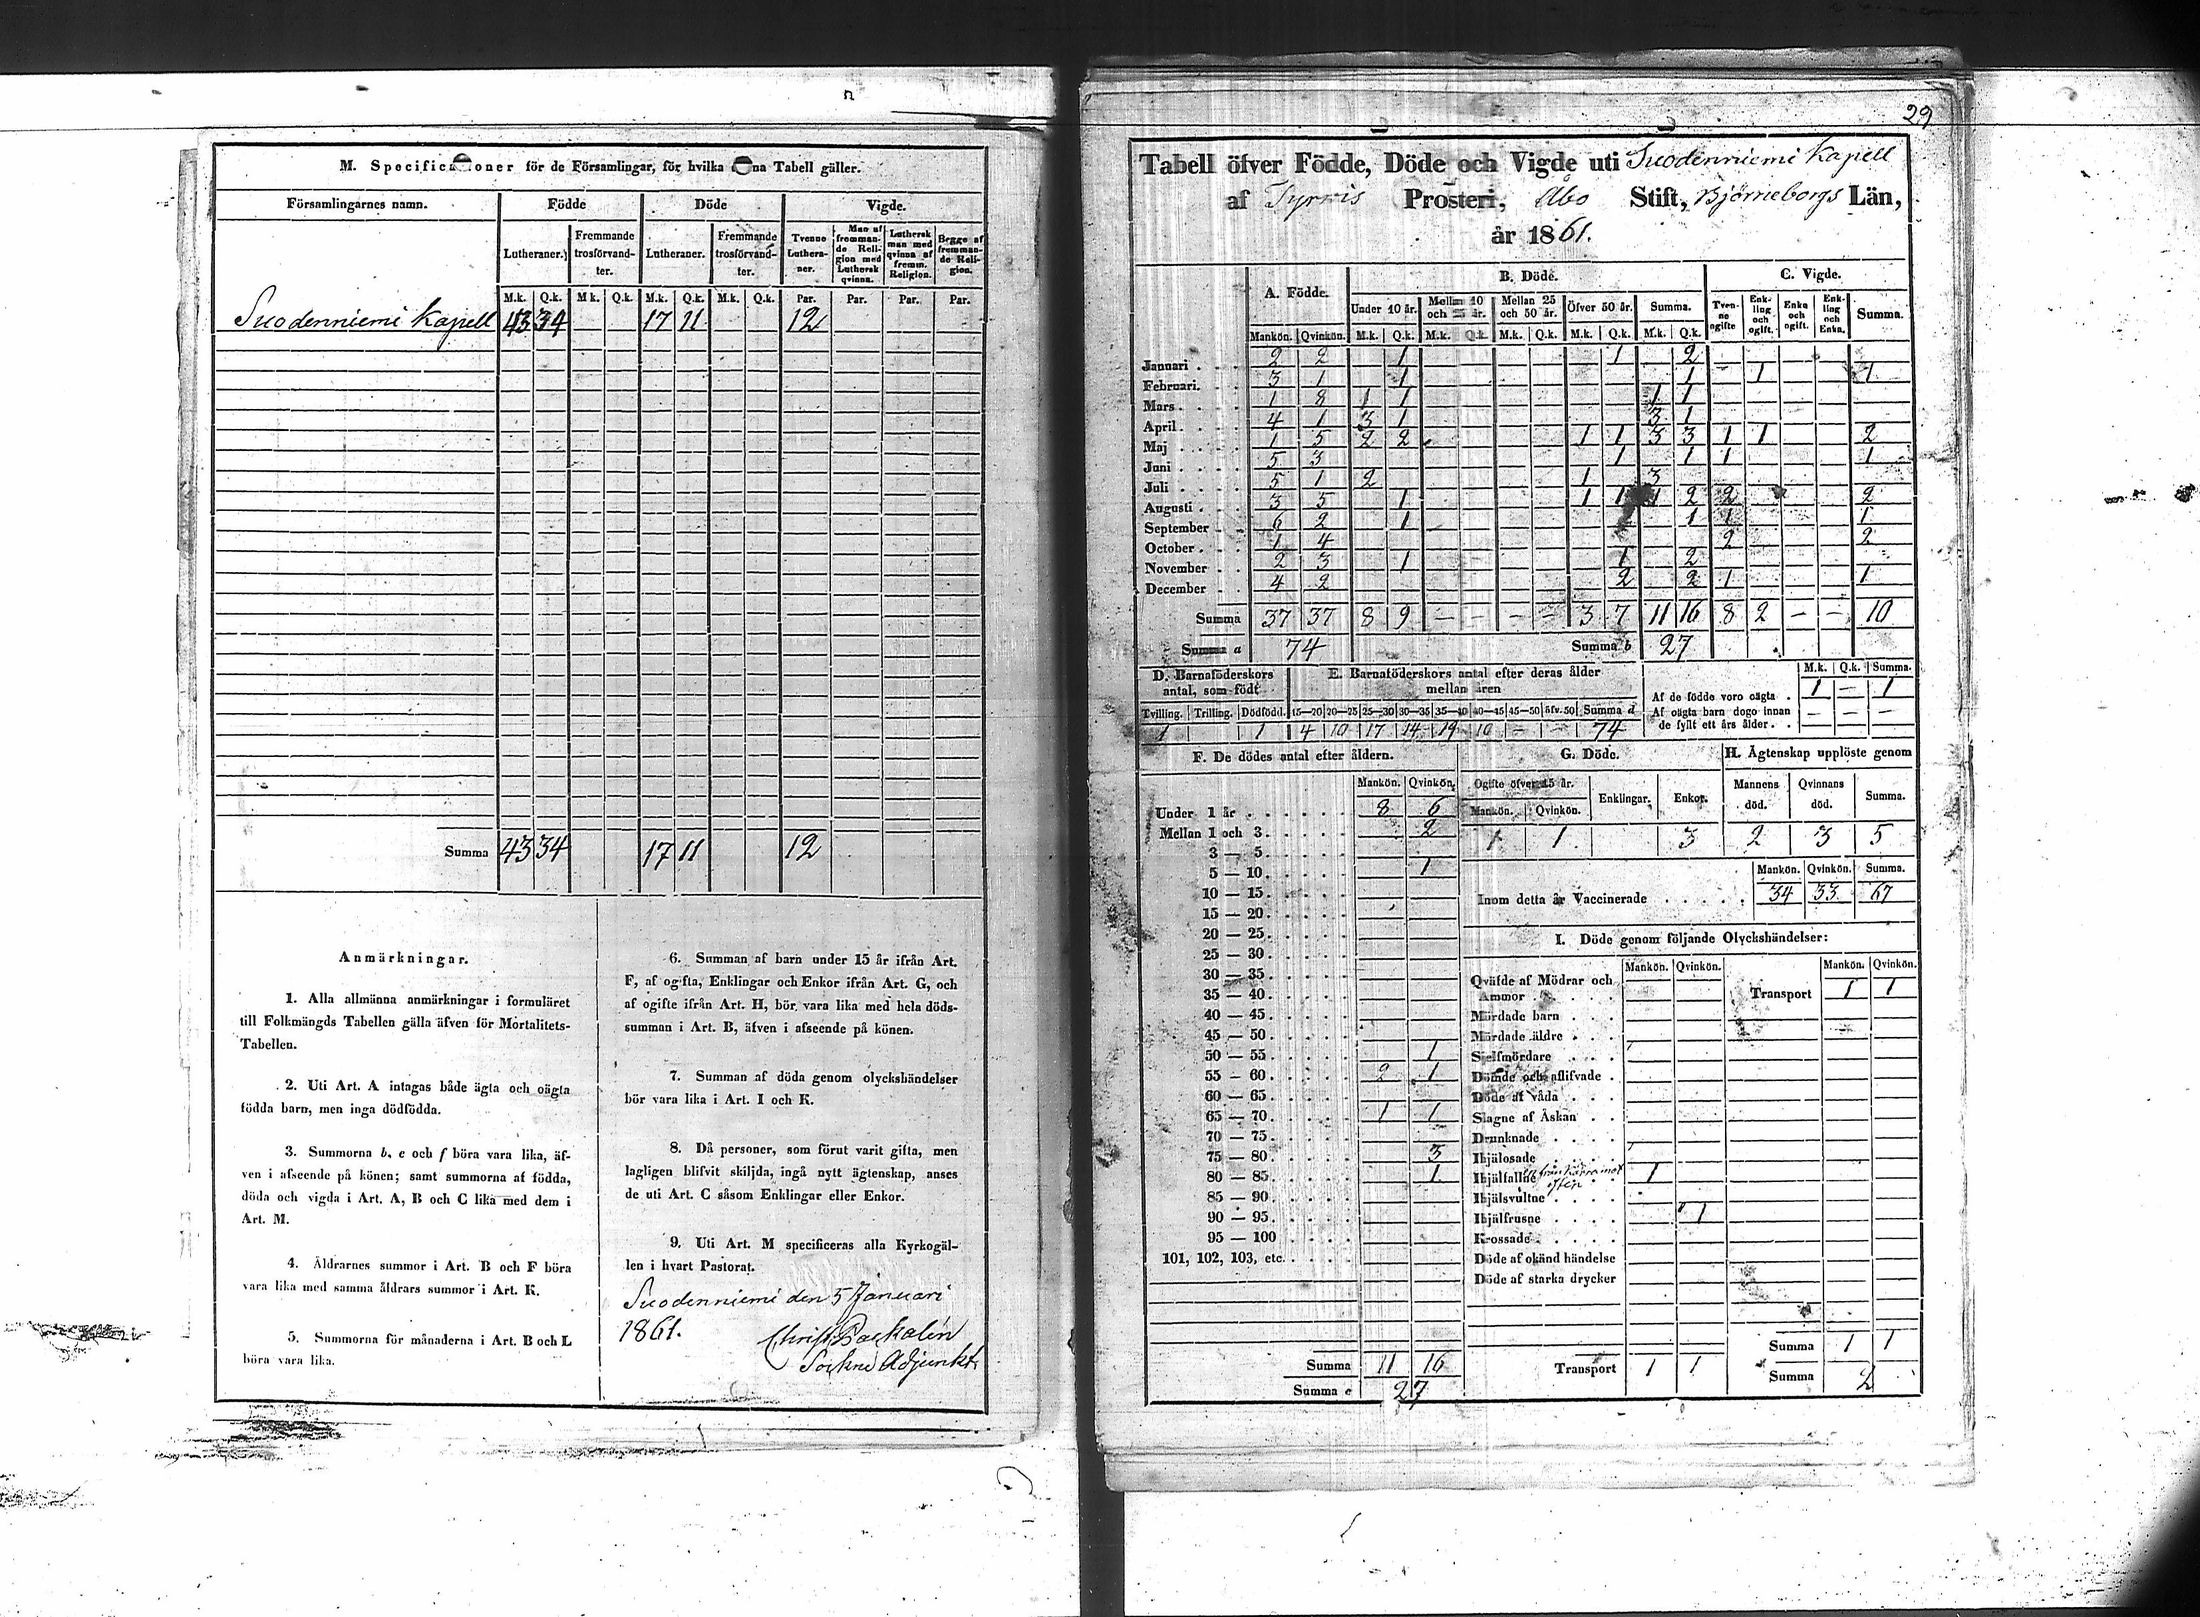 M. Specificationer för de Församlingar, för hvilka denna Tabell gäller.
Församlingarnes namn. Födde Döde Vigde.
Lutheraner. Fremmande trosförvandter. Lutheraner. Fremmande trosförvandter. Tvenne Lutheraner. Man af fremmande Religion med Luthersk qvinna. Luthersk man med qvinna af fremm. Religion. Begge af fremmande Religion.
M.k. Q.k. M.k. Q.k. M.k. Q.k. M.k. Q.k. Par. Par. Par. Par.
Suodenniemi Kapell 43 34 17 11 12
Summa 43 34 17 11 12
Anmärkningar.
1. Alla allmänna anmärkningar i formuläret
till Folkmängds Tabellen gälla äfven för Mortalitets-
Tabellen.
2. Uti Art. A intagas både ägta och oägta
födda barn, men inga dödfödda.
3. Summorna b, e och f böra vara lika, äf-
ven i afseende på könen; samt summorna af födda,
döda och vigda i Art. A, B och C lika med dem i
Art. M.
4. Åldrarnes summor i Art. B och F böra
vara lika med samma åldrars summor i Art. K.
5. Summorna för månaderna i Art. B och L
böra vara lika.
6. Summan af barn under 15 år ifrån Art.
F, af ogifta, Enklingar och Enkor ifrån Art. G, och
af ogifte ifrån Art. H, bör vara lika med hela döds-
summan i Art. B, äfven i afseende på könen.
7. Summan af döda genom olyckshändelser
bör vara lika i Art. I och K.
8. Då personer, som förut varit gifta, men
lagligen blifvit skiljda, ingå nytt ägtenskap, anses
de uti Art. C såsom Enklingar eller Enkor.
9. Uti Art. M specificeras alla Kyrkogäl-
len i hvart Pastorat.
Suodenniemi den 5 Januari
1861.
Adjunkt.
29
Tabell öfver Födde, Döde och Vigde uti Suodenniemi Kapell
af Tyrvis Prosteri, Åbo Stift, Björneborgs Län,
år 1861.
A. Födde. B. Döde. C. Vigde.
Under 10 år. Mellan 10 och 25 år. Mellan 25 och 50 år. Öfver 50 år. Summa. Tvenne ogifte Enkling och ogift. Enka och ogift. Enkling och Enka. Summa.
Mankön. Qvinkön. M.k. Q.k. M.k. Q.k. M.k. Q.k. M.k. Q.k. M.k. Q.k.
Januari 2 2 1 1 2
Februari. 3 1 1 1 1 1
Mars 1 8 1 1 1 1
April 4 1 3 1 3 1
Maj 1 5 2 2 1 1 3 3 1 1 2
Juni 5 3 1 1 1 1
Juli 5 1 2 1 3
Augusti 3 5 1 1 1 1 2 2 2
September 6 2 1 1 1 1
October 1 4 2 2
November 2 3 1 1 2
December 4 2 2 2 1 1
Summa 37 37 8 9 — — — — 3 7 11 16 8 2 — — 10
Summa a 74 Summa b 27
D. Barnaföderskors antal, som födt
Tvilling. Trilling. Dödfödd.
1 1
E. Barnaföderskors antal efter deras ålder mellan åren
15—20 20—25 25—30 30—35 35—40 40—45 45—50 öfv. 50 Summa d
4 10 17 14 19 10 — — 74
M.k. Q.k. Summa.
Af de födde voro oägta 1 — 1
Af oägta barn dogo innan
de fyllt ett års ålder — — —
F. De dödes antal efter åldern.
Mankön. Qvinkön.
Under 1 år 8 6
Mellan 1 och 3 2
3 — 5
5 — 10 1
10 — 15
15 — 20
20 — 25
25 — 30
30 — 35
35 — 40
40 — 45
45 — 50
50 — 55 1
55 — 60 2 1
60 — 65
65 — 70 1 1
70 — 75
75 — 80 3
80 — 85 1
85 — 90
90 — 95
95 — 100
101, 102, 103, etc.
Summa 11 16
Summa e 27
G. Döde.
Ogifte öfver 15 år. Enklingar. Enkor.
Mankön. Qvinkön.
1 1 3
H. Ägtenskap upplöste genom
Mannens död. Qvinnans död. Summa.
2 3 5
Mankön. Qvinkön. Summa.
Inom detta år Vaccinerade 34 33 67
I. Döde genom följande Olyckshändelser:
Mankön. Qvinkön. Mankön. Qvinkön.
Qväfde af Mödrar och
Ammor Transport 1 1
Mördade barn
Mördade äldre
Sjelfmördare
Dömde och aflifvade
Döde af våda
Slagne af Åskan
Drunknade
Ihjälosade
Ihjälfallne 1
Ihjälsvultne
Ihjälfrusne 1
Krossade
Döde af okänd händelse
Döde af starka drycker
Summa 1 1
Transport 1 1 Summa 2